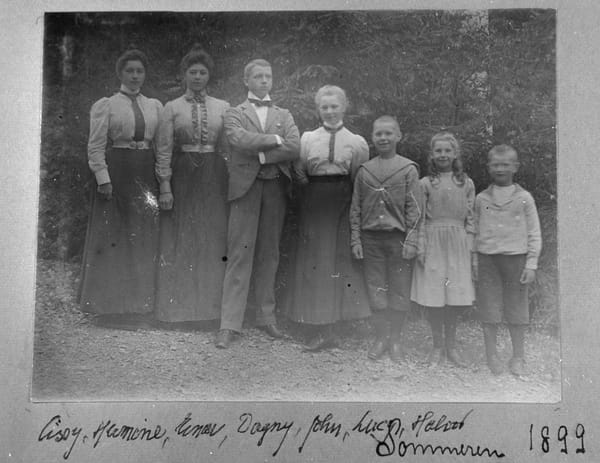 Cissy, Hermine, Einar, Dagny, John, Lucy, Halvor
Sommeren 1899